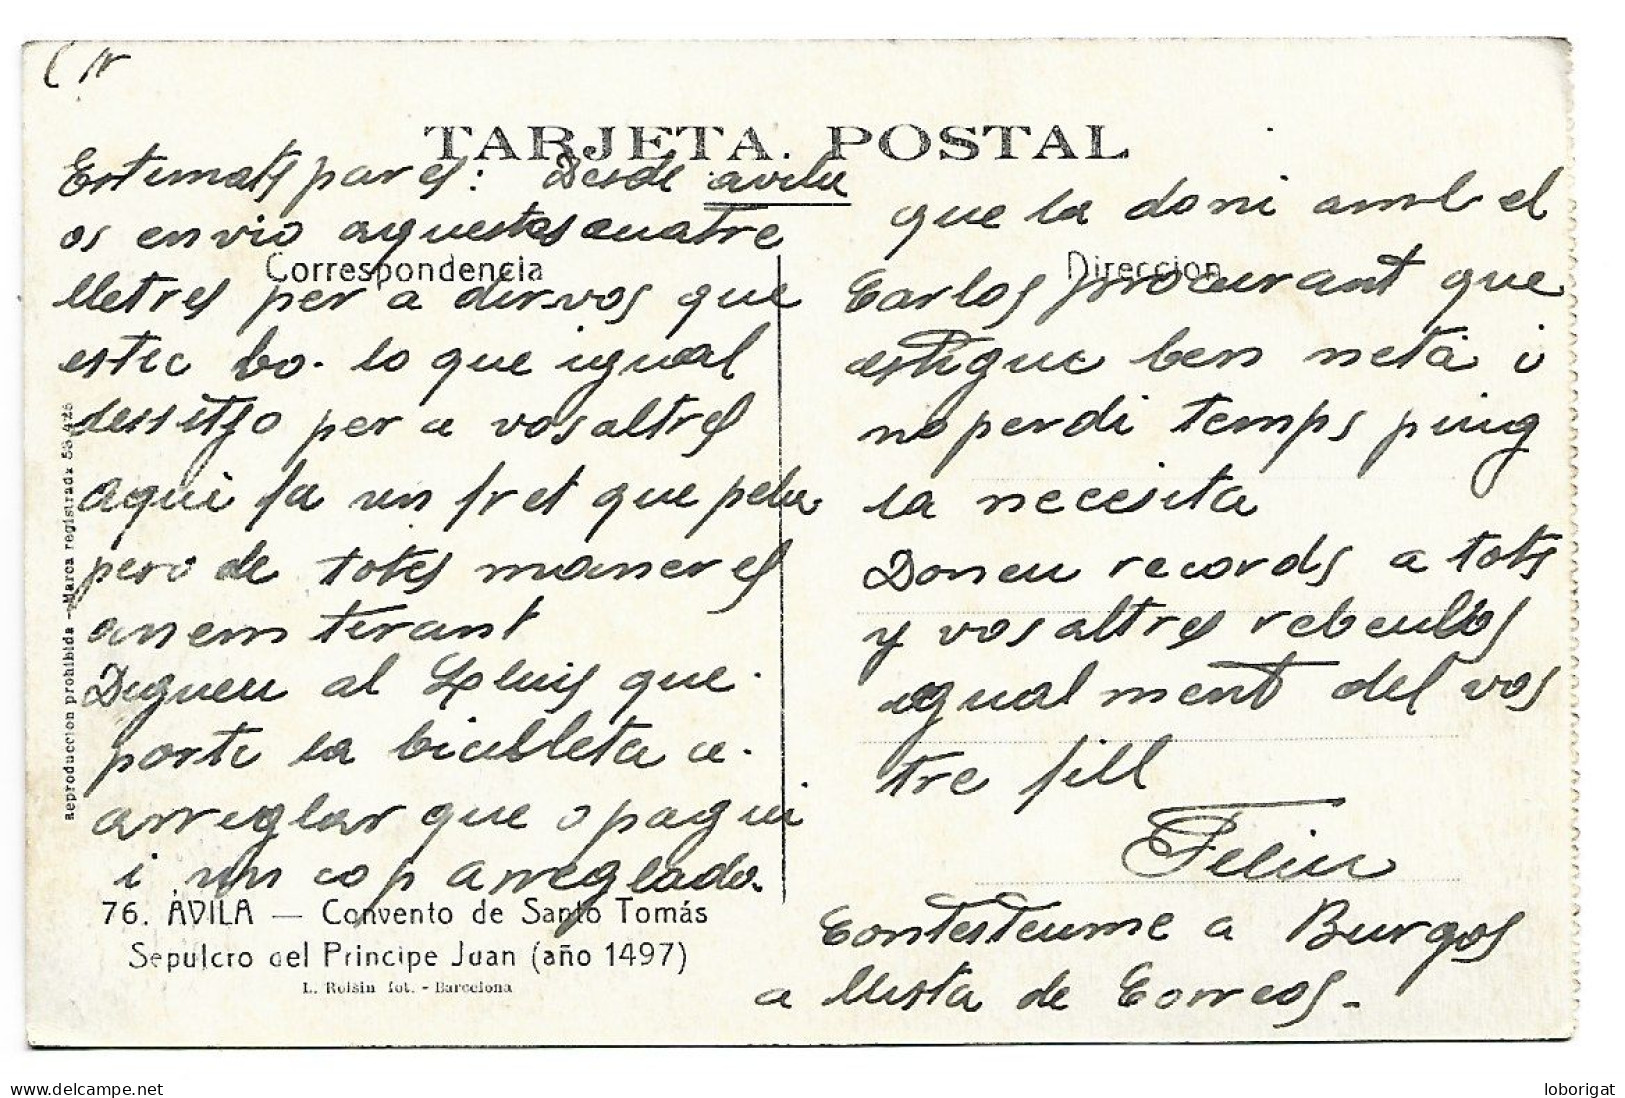 TARJETA POSTAL
Estimats pares: Desde avila
os envio aquestes cuatre
Correspondencia
lletres per a dir-vos que
estic bo. lo que igual
dessitjo per a vosaltres
aqui fa un fret que pela
pero de totes maneres
anem tirant
Digueu al Lluis que
porti la bicicleta a
arreglar que o pagui
i un cop arreglada
76. AVILA — Convento de Santo Tomás
Sepulcro del Principe Juan (año 1497)
L. Roisin fot. - Barcelona
Reproduccion prohibida - Marca registrada 53.425
que la doni amb el
Direccion
Carlos procurant que
estigue ben neta i
no perdi temps puig
la necesita
Doneu records a tots
y vosaltres rebeulos
igualment del vos
tre fill
Feliu
Contesteume a Burgos
a llista de Correos.
www.delcampe.net
loborigat